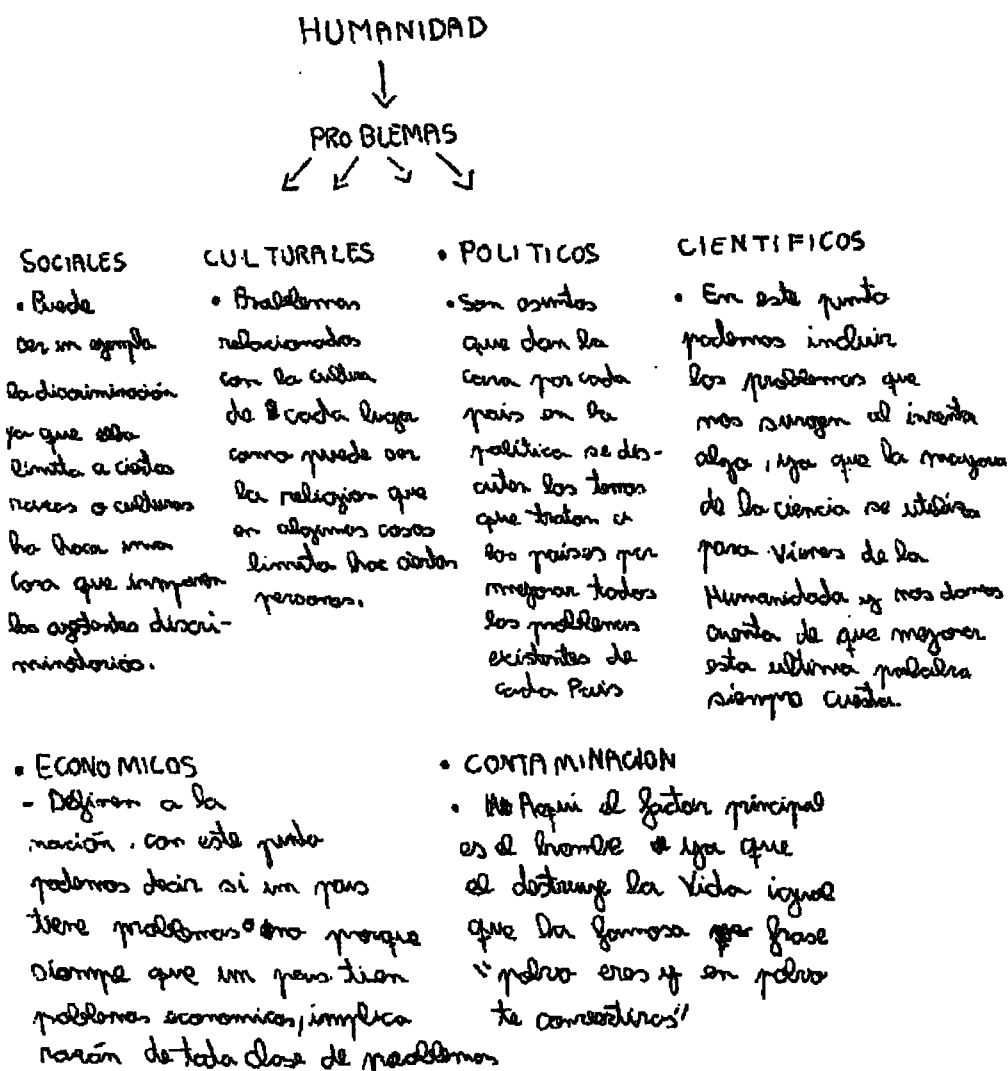 HUMANIDAD
PROBLEMAS
SOCIALES
• Puede
ser un ejemplo
la discriminación
ya que ella
limita a ciertas
razas o culturas
ha haca una
cosa que
los discri-
minatorios.
CULTURALES
• Problemas
relacionados
con la cultura
de cada lugar
como puede ser
la religion que
en algunos casos
limita hac ciertas
personas.
• POLITICOS
• Son asuntos
que dan la
cara por cada
pais en la
política se dis-
cuten los temas
que tratan a
los países por
mejorar todos
los problemas
existentes de
cada Pais
CIENTIFICOS
• En este punto
podemos incluir
los problemas que
nos surgen al inventa
algo, ya que la mayoria
de la ciencia se utiliza
para vienes de la
Humanidada y nos damos
cuenta de que mejorar
esta ultima palabra
siempre cuesta.
• ECONOMICOS
- Definen a la
nación. con este punto
podemos decir si un pais
tiene problemas o no porque
siempre que un pais tien
problemas economicos, implica
razón de toda clase de problemas
• CONTAMINACION
• Aqui el factor principal
es el hombre ya que
el destruye la Vida igual
que la famosa frase
"polvo eres y en polvo
te convertiras"